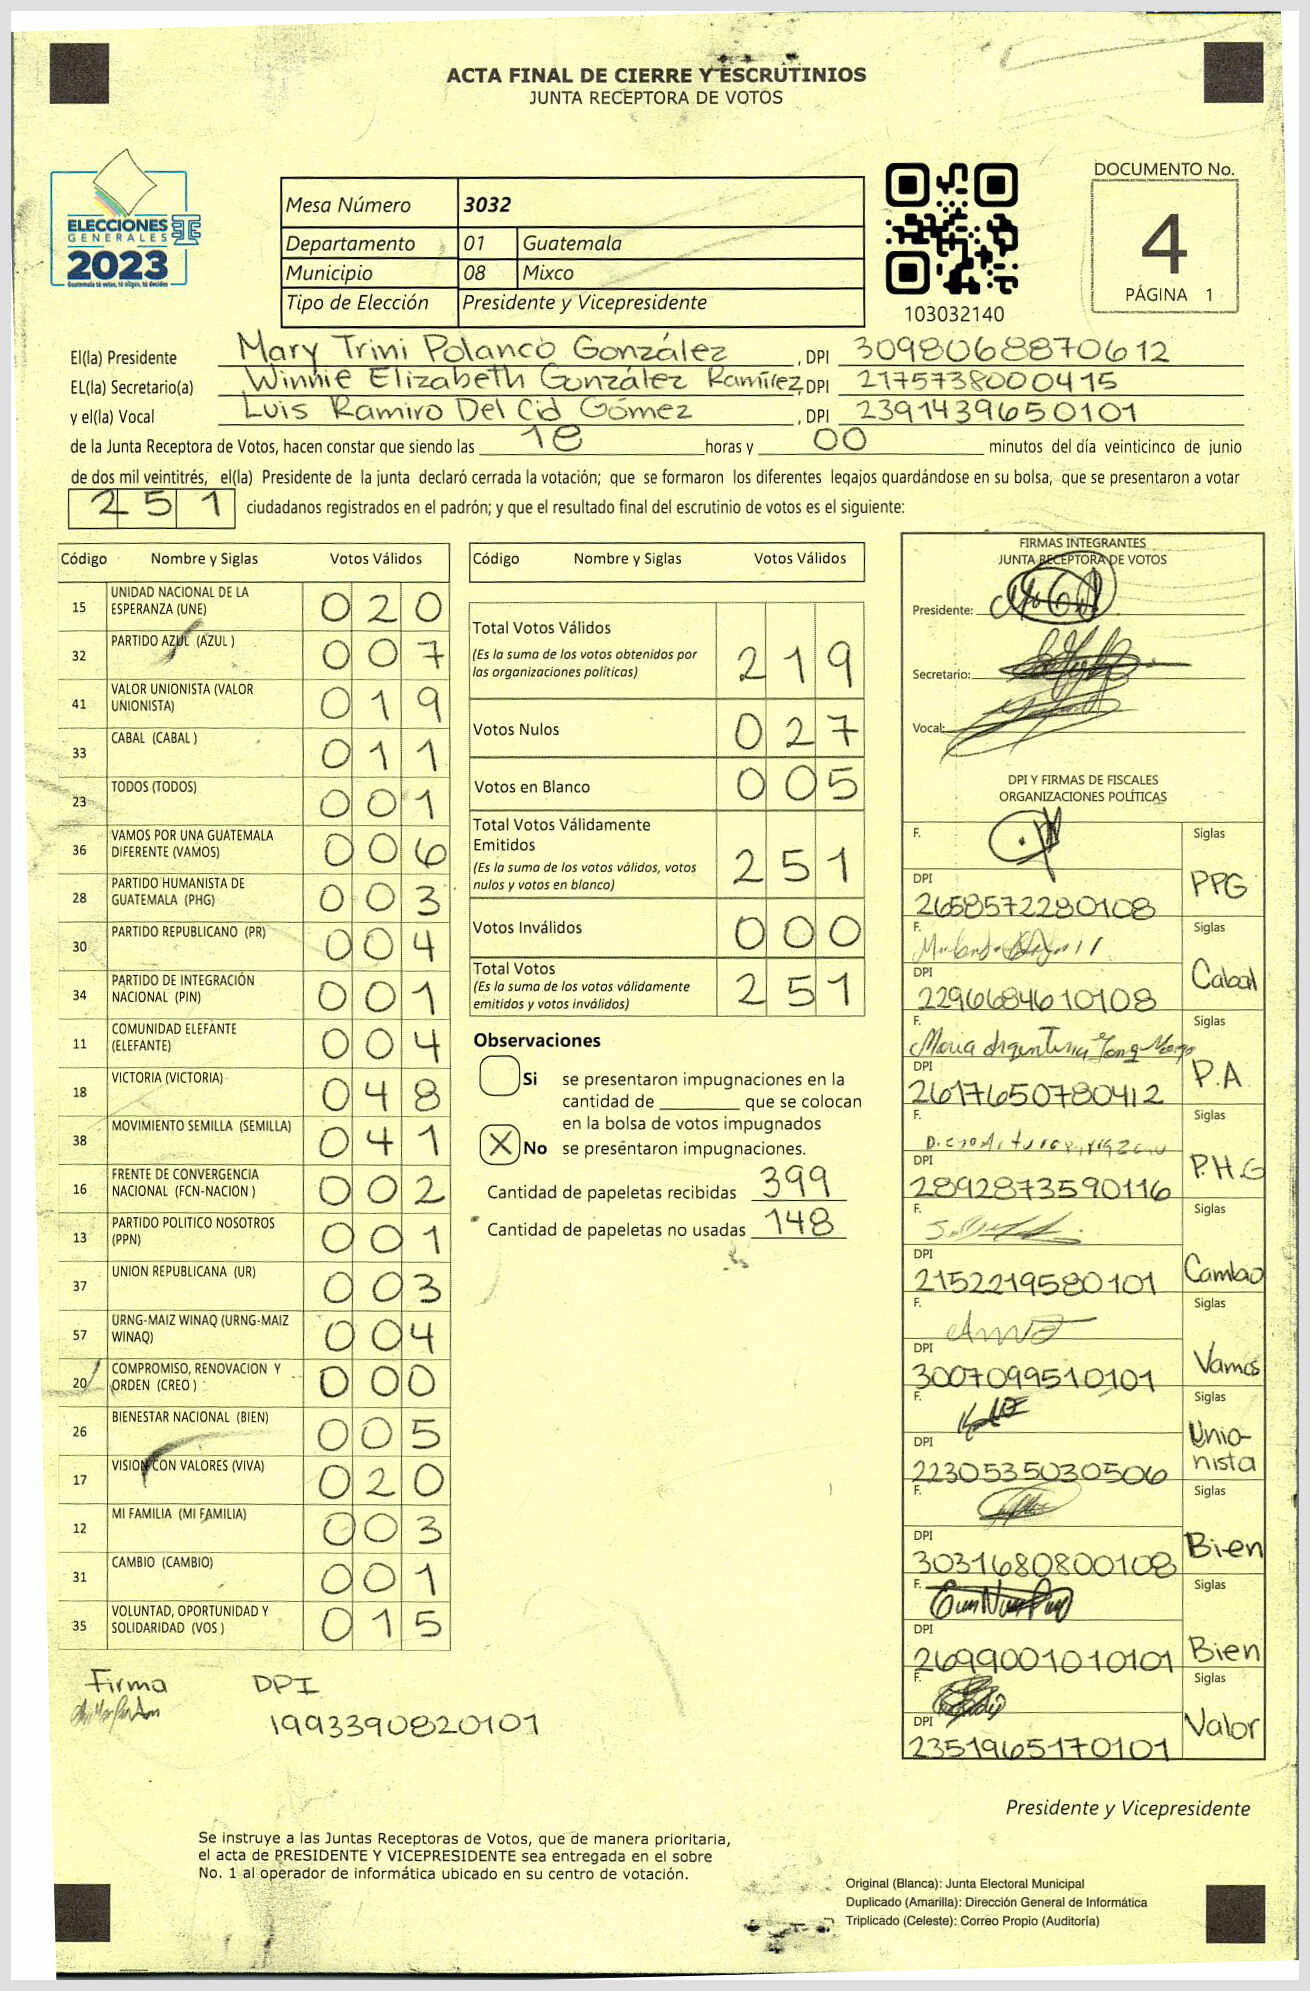 ACTA FINAL DE CIERRE Y ESCRUTINIOS
JUNTA RECEPTORA DE VOTOS
ELECCIONES
GENERALES
2023
Guatemala tú votas, tú eliges, tú decides
Mesa Número 3032
Departamento 01 Guatemala
Municipio 08 Mixco
Tipo de Elección Presidente y Vicepresidente
103032140
DOCUMENTO No.
4
PÁGINA 1
El(la) Presidente Mary Trini Polanco González, DPI 3098068870612
EL(la) Secretario(a) Winnie Elizabeth González Ramírez, DPI 2175738000415
y el(la) Vocal Luis Ramiro Del Cid Gómez, DPI 2391439650101
de la Junta Receptora de Votos, hacen constar que siendo las 18 horas y 00 minutos del día veinticinco de junio
de dos mil veintitrés, el(la) Presidente de la junta declaró cerrada la votación; que se formaron los diferentes legajos guardándose en su bolsa, que se presentaron a votar
251 ciudadanos registrados en el padrón; y que el resultado final del escrutinio de votos es el siguiente:
Código Nombre y Siglas Votos Válidos
15 UNIDAD NACIONAL DE LA ESPERANZA (UNE) 020
32 PARTIDO AZUL (AZUL ) 007
41 VALOR UNIONISTA (VALOR UNIONISTA) 019
33 CABAL (CABAL ) 011
23 TODOS (TODOS) 001
36 VAMOS POR UNA GUATEMALA DIFERENTE (VAMOS) 006
28 PARTIDO HUMANISTA DE GUATEMALA (PHG) 003
30 PARTIDO REPUBLICANO (PR) 004
34 PARTIDO DE INTEGRACIÓN NACIONAL (PIN) 001
11 COMUNIDAD ELEFANTE (ELEFANTE) 004
18 VICTORIA (VICTORIA) 048
38 MOVIMIENTO SEMILLA (SEMILLA) 041
16 FRENTE DE CONVERGENCIA NACIONAL (FCN-NACION ) 002
13 PARTIDO POLITICO NOSOTROS (PPN) 001
37 UNION REPUBLICANA (UR) 003
57 URNG-MAIZ WINAQ (URNG-MAIZ WINAQ) 004
20 COMPROMISO, RENOVACION Y ORDEN (CREO ) 000
26 BIENESTAR NACIONAL (BIEN) 005
17 VISION CON VALORES (VIVA) 020
12 MI FAMILIA (MI FAMILIA) 003
31 CAMBIO (CAMBIO) 001
35 VOLUNTAD, OPORTUNIDAD Y SOLIDARIDAD (VOS ) 015
Firma DPI
1993390820101
Código Nombre y Siglas Votos Válidos
Total Votos Válidos 219
(Es la suma de los votos obtenidos por
las organizaciones políticas)
Votos Nulos 027
Votos en Blanco 005
Total Votos Válidamente
Emitidos 251
(Es la suma de los votos válidos, votos
nulos y votos en blanco)
Votos Inválidos 000
Total Votos 251
(Es la suma de los votos válidamente
emitidos y votos inválidos)
Observaciones
Si se presentaron impugnaciones en la
cantidad de ________ que se colocan
en la bolsa de votos impugnados
X No se presentaron impugnaciones.
Cantidad de papeletas recibidas 399
Cantidad de papeletas no usadas 148
FIRMAS INTEGRANTES
JUNTA RECEPTORA DE VOTOS
Presidente:
Secretario:
Vocal:
DPI Y FIRMAS DE FISCALES
ORGANIZACIONES POLÍTICAS
F. Siglas
DPI PPG
2658572280108
F. Siglas
DPI Cabal
2296684610108
F. Maria Argentina Siglas
DPI P.A
2617650780412
F. Siglas
DPI P.H.G
2892873590116
F. Siglas
DPI Cambio
2152219580101
F. Siglas
DPI Vamos
3007099510101
F. Siglas
DPI Unio-
nista
2230535030506
F. Siglas
DPI Bien
3031680800108
F. Siglas
DPI Bien
2699001010101
F. Siglas
DPI Valor
2351965170101
Presidente y Vicepresidente
Se instruye a las Juntas Receptoras de Votos, que de manera prioritaria,
el acta de PRESIDENTE Y VICEPRESIDENTE sea entregada en el sobre
No. 1 al operador de informática ubicado en su centro de votación.
Original (Blanca): Junta Electoral Municipal
Duplicado (Amarilla): Dirección General de Informática
Triplicado (Celeste): Correo Propio (Auditoría)